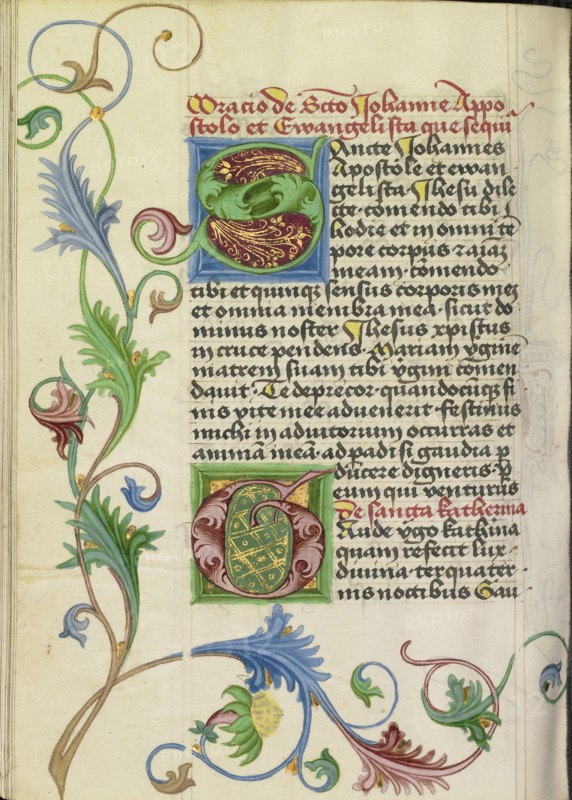 Oracio de Scto Johanne Appo
stolo et Ewangelista que sequi
Sancte Johannes
Apostole et ewan
gelista Jhesu dile
cte comendo tibi
hodie et in omni te
pore corpus
meam comendo
tibi et quinqz sensus corporis mei
et omnia membra mea sicut do
minus noster Jhesus xpistus
in cruce pendens Mariam vginē
matrem suam tibi vgini comen
dauit Te deprecor quandocūqz fi
nis vite mee aduenerit festinus
michi in adiutorium occurras et
animā meā ad padisi gaudia p
ducere digneris P
eum qui venturus
de sancta katherina
Gaude vgo kathina
quam refecit lux
diuina ter quater
nis noctibus Gau